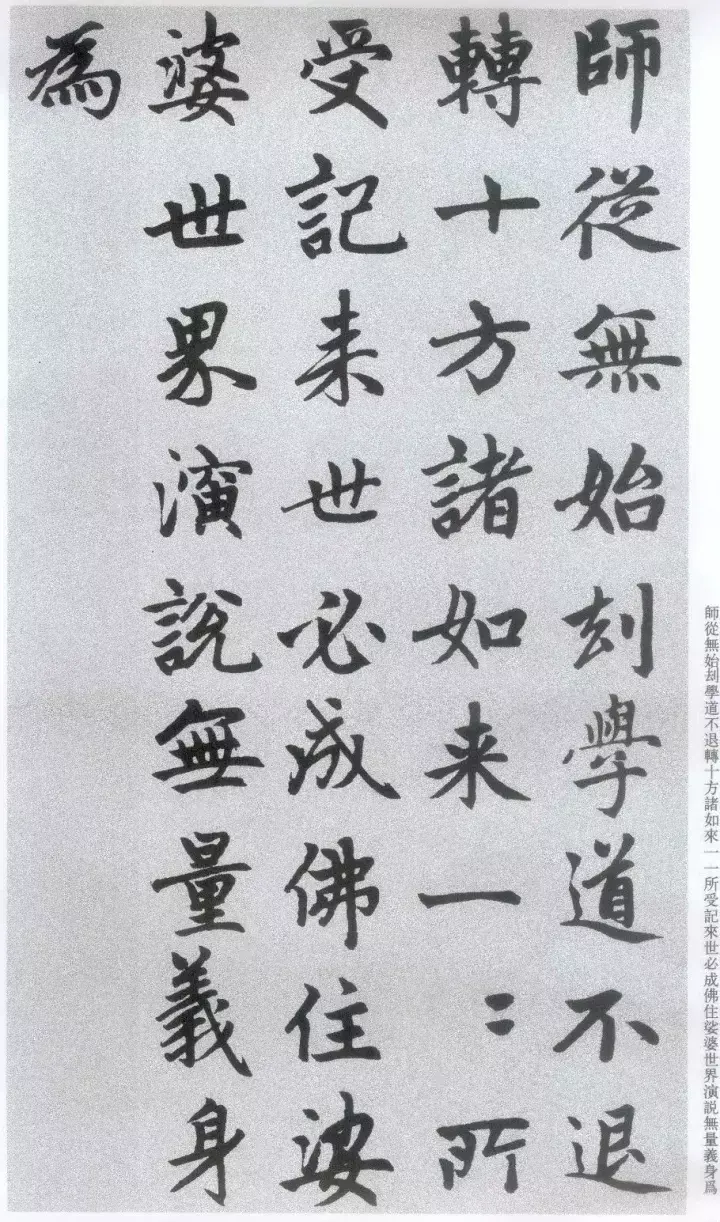 師從無始刦學道不退
轉十方諸如来一〻所
受記来世必成佛住娑
婆世界演說無量義身
為
師從無始刦學道不退轉十方諸如來一一所受記來世必成佛住裟婆世界演説無量義身爲